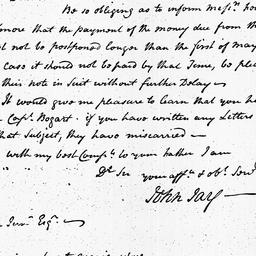 Be so obliging as to inform Messrs. 
more that the payment of the money due from the
not be postponed longer than the first of may
case it should not be paid by that Time, be
their note in Suit without further Delay
It would give me pleasure to learn that you
Capt. Bogart. if you have written any Letters
that Subject, they have miscarried —
with my best Compts. to your father I am
Dr Sir your affte. & obt. Servt
John Jay
Esqr.